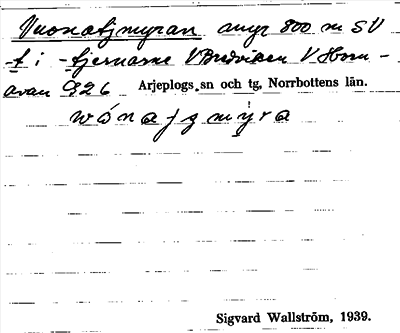 Vuonatjmyran myr 800 m SV
t i tjernarne V Bredviken V Horn-
avan 9,26 Arjeplogs sn och tg, Norrbottens län.
wónajzmyra
Sigvard Wallström, 1939.